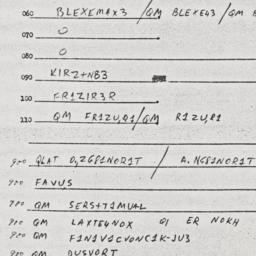 060 BLEXEMAX3 / QM BLEXE43 / QM
070 O
080 O
090 KIRZ+NB3
100 FR1ZIR3R
110 QM FR1ZU,R1 / QM R1ZU,R1
900 QLAT O,2G81NOR1T / A.NG81NOR1T
900 FAVUS
900 QM SERS+T1MUAL
900 QM LAXTE4NOX QI ER NOKH
900 QM F1N1V1CVONC1K-JU3
900 QM DUSVORT